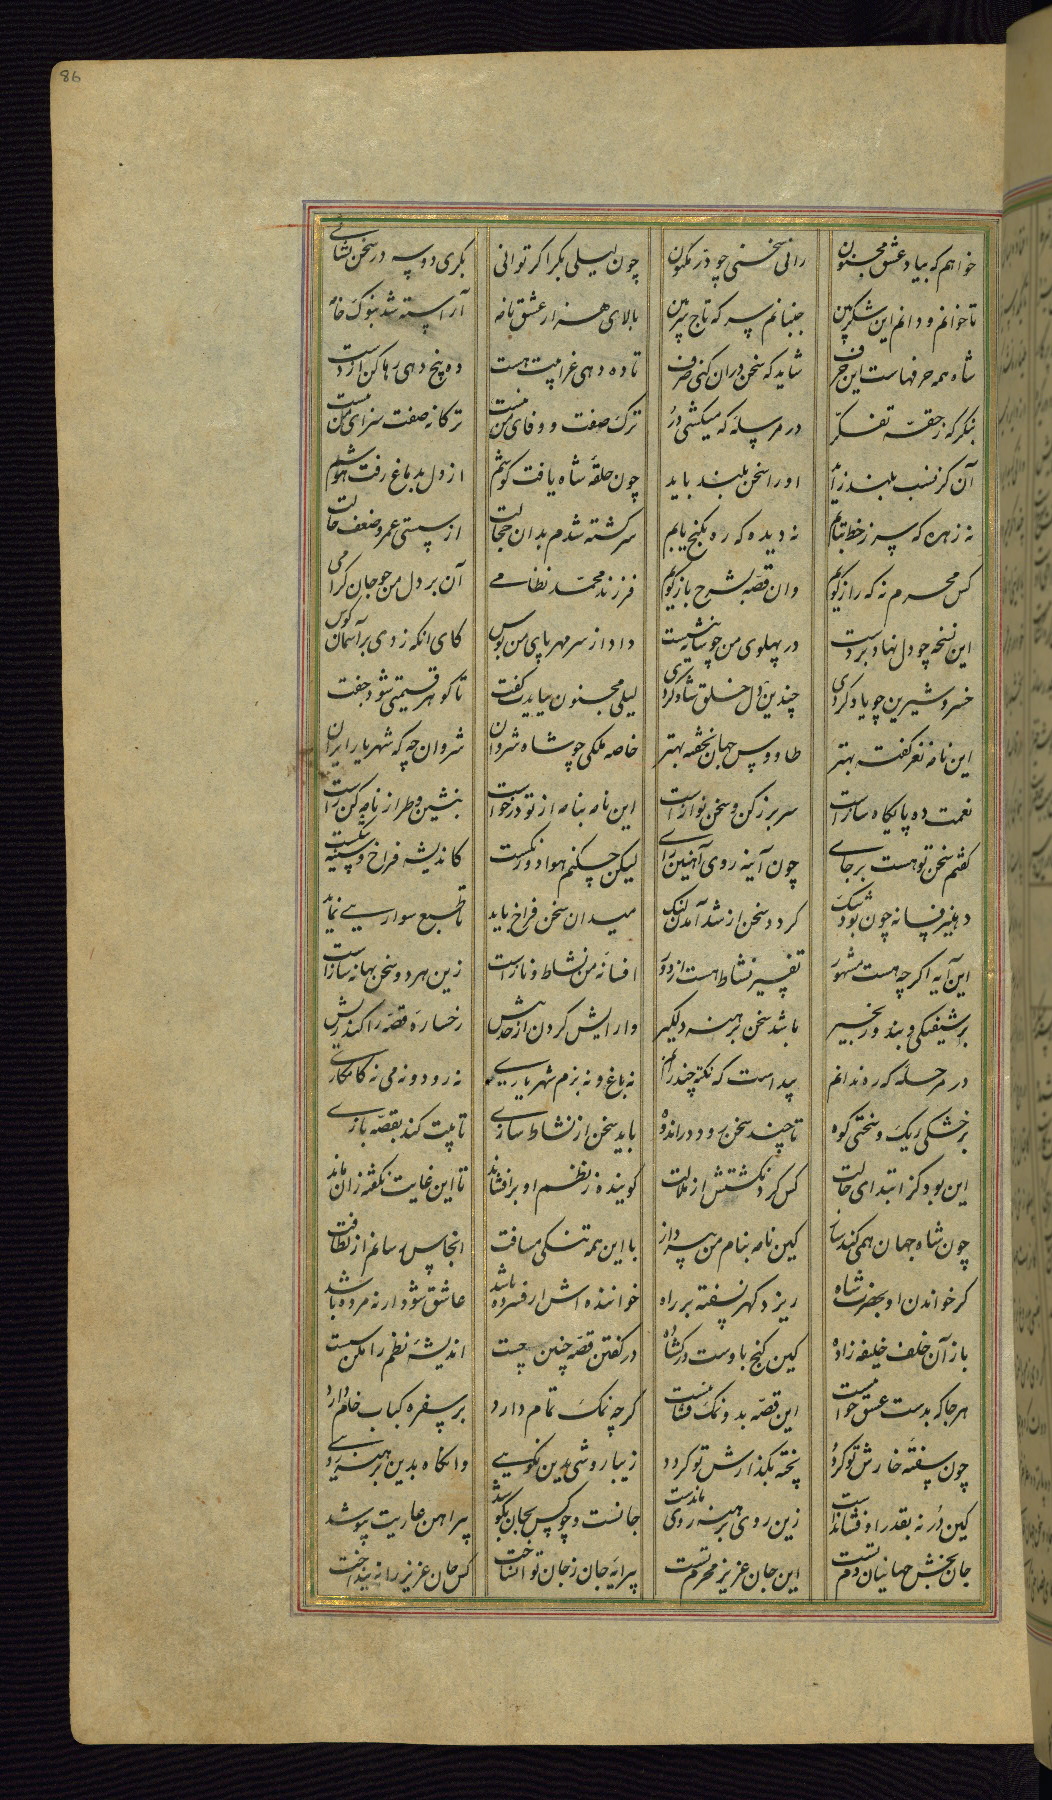 86
خواهم که بیاد عشق مجنون رانی سخنی چو در مکنون چون لیلی بکر اگر توانی بکری دو سه در سخن نشانی
تا خوانم و دانم این شکر بین جنبانم سر که تاج سر بین بالای هزار عشق نامه آراسته شد بنوک خامه
شاه همه حرفهاست این حرف شاید که سخن دران کنی صرف تا ده دهی غرایبت هست ده پنج دهی رها کن از دست
بنگر که ز حقه تفکر در مرسله که میکشی در ترک صفت وفای من نیست ترکانه صفت سزای من نیست
آن کز نسب بلند زاید او را سخن بلند باید چون حلقه شاه یافت گوشم از دل بدماغ رفت هوشم
نه زهره که سر ز خط بتابم نه دیده که ره بگنج یابم سرگشته شدم بدان خجالت از سستی عمر و ضعف حالت
کس محرم نه که راز گویم وان قصه بشرح باز گویم فرزند محمد نظامی آن بر دل من چو جان گرامی
این نسخه چو دل نهاد بر دست در پهلوی من چو سایه بنشست داد از سر مهر پای من بوس کای انکه زدی بر آسمان کوس
خسرو شیرین چو یاد کردی چندین دل خلق شاد کردی لیلی مجنون بباید گفت تا گوهر قیمتی شود جفت
این نامه نغز گفته بهتر طاووس جهان نخفته بهتر خاصه ملکی چو شاه شروان شروان چه که شهریار ایران
نعمت ده پایگاه سازاست سر سبز کن و سخن نوازاست این نامه بنامه از تو درخواست بنشین و طراز نامه کن راست
گفتم سخن تو هست بر جای ای آینه روی آهنین رای لیکن چکنم هوا دو رنگست کاندیشه فراخ و سینه تنگست
دهلیز فسانه چون بود تنگ گردد سخن از شد آمدن لنگ میدان سخن فراخ باید تا طبع سواریی نماید
این آیه اگر چه هست مشهور تفسیر نشاط هست ازو دور افسانه من نشاط و نازست زین هر دو سخن بهانه سازاست
بر شیفتگی و بند و زنجیر باشد سخن برهنه دلگیر وارایش کردن از حد بیش رخساره قصه را کند ریش
در مرحله که ره ندانم پیداست که نکته چند رانم نه باغ و نه بزم شهریاری نه رود و نه می نه کامکاری
بر خشکی ریک و سختی کوه تا چند سخن رود در اندوه باید سخن از نشاط سازی تا بیت کند بقصه بازی
این بود کز ابتدای حالت کس گرد نگشتش از ملالت گوینده ز نظم او بر افشاند تا این غایت نگفته زان ماند
چون شاه جهان همی کند ساز کین نامه بنام من بپرداز با این همه تنگی مسافت انجاش رسانم از لطافت
کز خواندن او بحضرت شاه ریزد گهر نسفته بر راه خواننده اش ار فسرده باشد عاشق شود ار نه مرده باشد
باز آن خلف خلیفه زاده کین گنج باوست در گشاده در گفتن قصه چنین چست اندیشه نظم را مکن سست
هرجا که بدست عشق خوانیست این قصه بدو نمک فشانیست گرچه نمک تمام دارد بر سفره کباب خام دارد
چون سفته خارش تو گردد پخته بگذارش تو گردد زیبا رویی بدین نکویی وانگاه بدین برهنه رویی
کین در نه بقدر او فشاندست زین روی برهنه روی ماندست جانست و چو کس بجان نکوشد پیراهن عاریت نپوشد
جان بخش جهانیان دم تست این جان عزیز محرم تست پیرایه جان ز جان توان ساخت کس جان عزیز را نینداخت